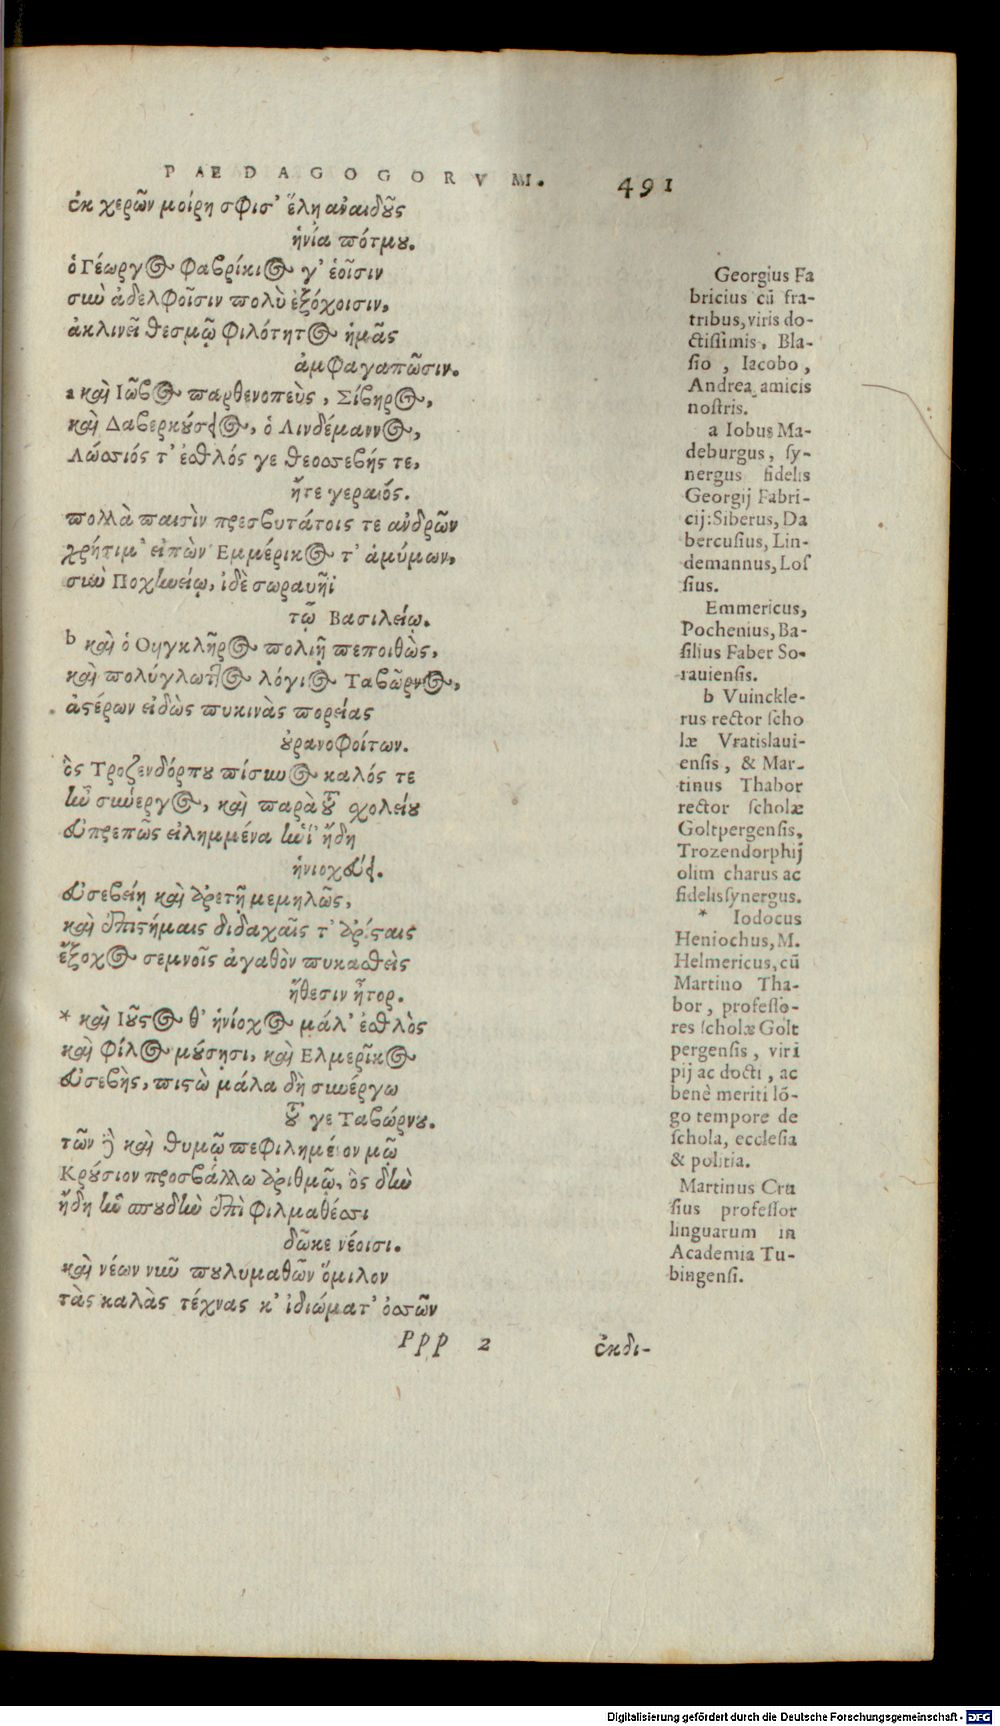 PAEDAGOGORVM. 491
ἐκ χερῶν μοίρη σφισ' ἕλη ἀναιδοῦς
ἡνία πότμου.
ὁ Γέωργος Φαβρίκιος γ' ἑοῖσιν
σὺν ἀδελφοῖσιν πολὺ ἐξόχοισιν,
ἀκλινεῖ θεσμῷ φιλότητος ἡμᾶς
ἀμφαγαπῶσιν.
a καὶ Ἰῶβος παρθενοπεὺς, Σίβηρος,
καὶ Δαβερκούσιος, ὁ Λινδέμαννος,
Λώσσιός τ' ἐσθλός γε θεοσσεβής τε,
ἤτε γεραιός.
πολλὰ παισὶν πρεσβυτάτοις τε ἀνδρῶν
χρήτιμ' εἰπὼν Εμμέρικος τ' ἀμύμων,
σὺν Ποχηνείῳ, ἰδὲ σωραυῆϊ
τῷ Βασιλείῳ.
b καὶ ὁ Ουγκλῆρος πολιῇ πεποιθὼς,
καὶ πολύγλωττος λόγιος Ταβῶρνος,
ἀστέρων εἰδὼς πυκινὰς πορείας
οὐρανοφοίτων.
ὃς Τροζενδόρπου πίσυνος καλός τε
ἦν σύνεργος, καὶ παρὰ τοῦ σχολείου
εὐπρεπῶς εἰλημμένα ἡνί' ἤδη
ἡνιοχεύει.
εὐσεβείῃ καὶ ἀρετῇ μεμηλῶς,
καὶ ἐπιστήμαις διδαχαῖς τ' ἀρίσταις
ἔξοχος σεμνοῖς ἀγαθὸν πυκασθεὶς
ἤθεσιν ἦτορ.
* καὶ Ἰοῦστος θ' ἡνίοχος μάλ' ἐσθλὸς
καὶ φίλος μούσῃσι, καὶ Ελμερῖκος
εὐσεβὴς, πιστὼ μάλα δὴ συνέργω
τοῦ γε Ταβώρνου.
τῶν δὲ καὶ θυμῷ πεφιλημένον μῷ
Κρούσιον προσβάλλω ἀριθμῷ, ὃς δὴν
ἤδη ἣν σπουδὴν ἐπὶ φιλμαθέσσι
δῶκε νέοισι.
καὶ νέων νῦν πουλυμαθῶν ὅμιλον
τὰς καλὰς τέχνας κ' ἰδιώματ' ὀσσῶν
Ppp 2 ἐκδι-
Georgius Fa
bricius cū fra-
tribus, viris do-
ctissimis, Bla-
sio, Iacobo,
Andrea amicis
nostris.
a Iobus Ma-
deburgus, sy-
nergus fidelis
Georgij Fabri-
cij: Siberus, Da
bercusius, Lin-
demannus, Los
sius.
Emmericus,
Pochenius, Ba-
silius Faber So-
rauiensis.
b Vuinckle-
rus rector scho
læ Vratislaui-
ensis, & Mar-
tinus Thabor
rector scholæ
Goltpergensis,
Trozendorphij
olim charus ac
fidelis synergus.
* Iodocus
Heniochus, M.
Helmericus, cū
Martino Tha-
bor, professo-
res scholæ Golt
pergensis, viri
pij ac docti, ac
benè meriti lō-
go tempore de
schola, ecclesia
& politia.
Martinus Cru
sius professor
linguarum in
Academia Tu-
bingensi.
Digitalisierung gefördert durch die Deutsche Forschungsgemeinschaft - DFG